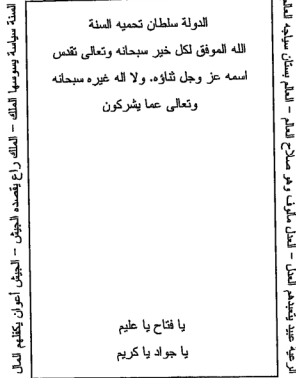 الدولة سلطان تحميه السنة
الله الموفق لكل خير سبحانه وتعالى تقدس
اسمه عز وجل ثناؤه. ولا اله غيره سبحانه
وتعالى عما يشركون
يا فتاح يا عليم
يا جواد يا كريم
السنة سياسة يسوسها الملك – الملك راع يقصده الجيش – الجيش أعوان يكفلهم المال
الرعية عبيد يتعبدهم العدل – العدل مالوف وهو صلاح العالم – العالم بستان سياجه